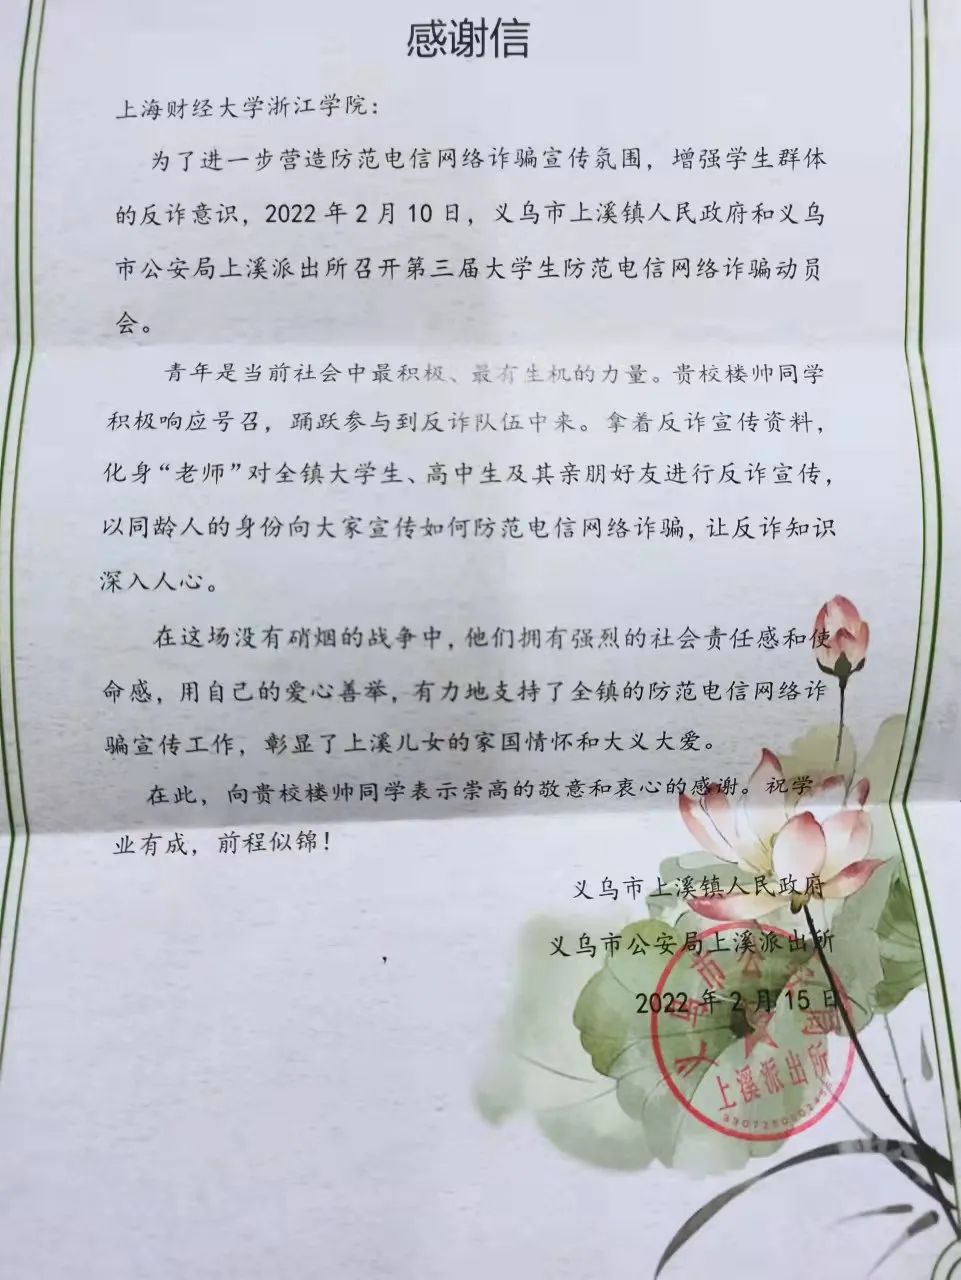 感谢信
上海财经大学浙江学院：
为了进一步营造防范电信网络诈骗宣传氛围，增强学生群体
的反诈意识，2022年2月10日，义乌市上溪镇人民政府和义乌
市公安局上溪派出所召开第三届大学生防范电信网络诈骗动员
会。
青年是当前社会中最积极、最有生机的力量。贵校楼帅同学
积极响应号召，踊跃参与到反诈队伍中来。拿着反诈宣传资料，
化身“老师”对全镇大学生、高中生及其亲朋好友进行反诈宣传，
以同龄人的身份向大家宣传如何防范电信网络诈骗，让反诈知识
深入人心。
在这场没有硝烟的战争中，他们拥有强烈的社会责任感和使
命感，用自己的爱心善举，有力地支持了全镇的防范电信网络诈
骗宣传工作，彰显了上溪儿女的家国情怀和大义大爱。
在此，向贵校楼帅同学表示崇高的敬意和衷心的感谢。祝学
业有成，前程似锦！
义乌市上溪镇人民政府
义乌市公安局上溪派出所
2022年2月15日
义乌市公安局
上溪派出所